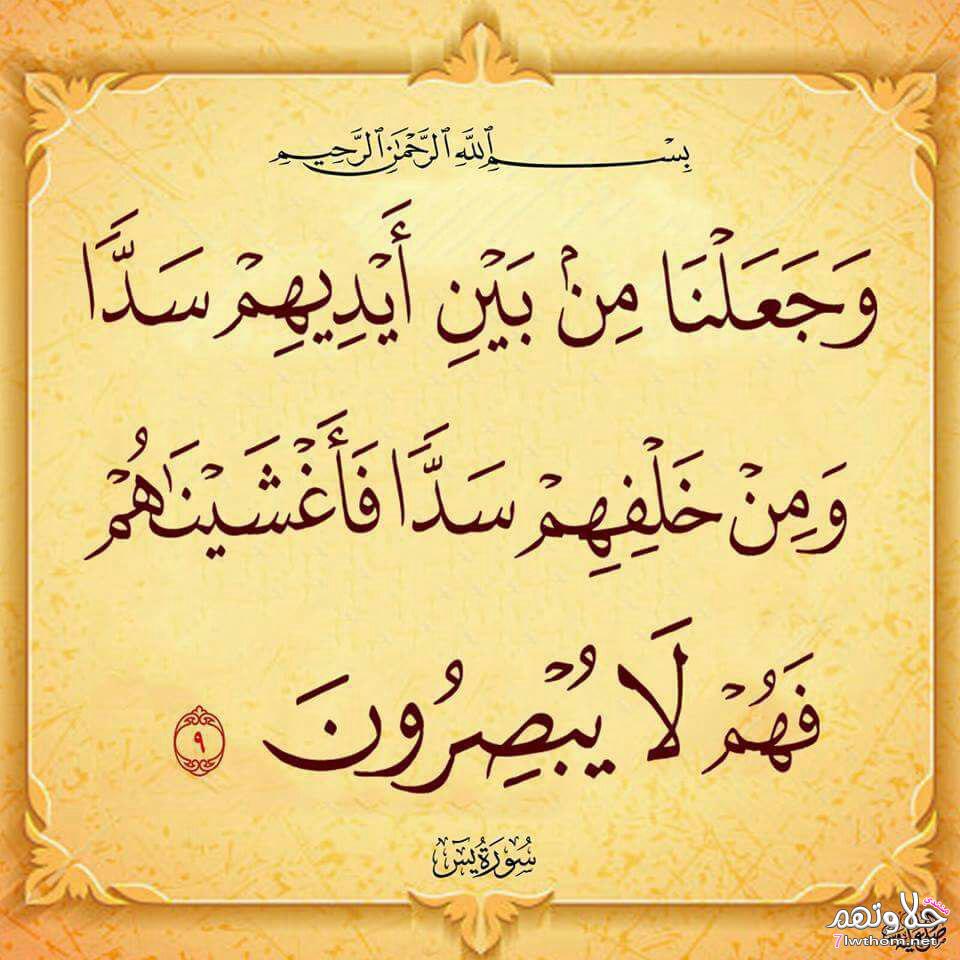 بِسْمِ ٱللَّهِ ٱلرَّحْمَٰنِ ٱلرَّحِيمِ
وَجَعَلْنَا مِنۢ بَيْنِ أَيْدِيهِمْ سَدًّا
وَمِنْ خَلْفِهِمْ سَدًّا فَأَغْشَيْنَٰهُمْ
فَهُمْ لَا يُبْصِرُونَ ٩
سُورَةُ يسٓ
منتدي
حلاوتهم
7lwthom.net